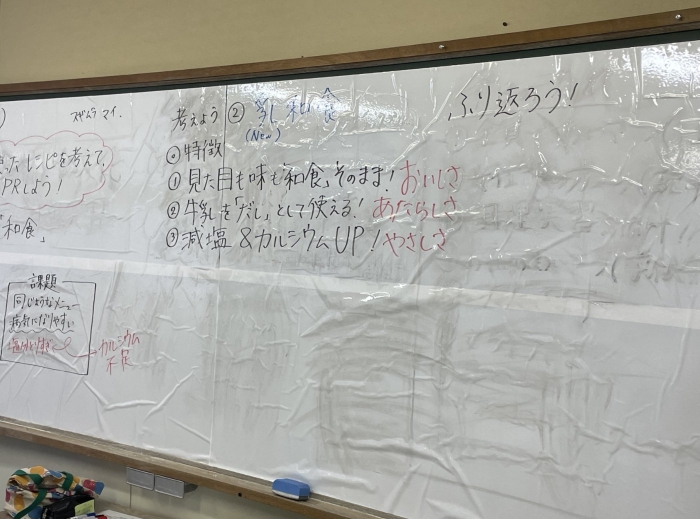 見た レシピを考えて、
PRしよう！
「和食」
課題
同じようなメニュー
病気になりやすい
カルシウム
不足
考えよう ② 乳和食
(New)
◎特徴
①見た目も味も「和食」そのまま！おいしさ
②牛乳を「だし」として使える！あたらしさ
③減塩&カルシウムUP！やさしさ
ふり返ろう！